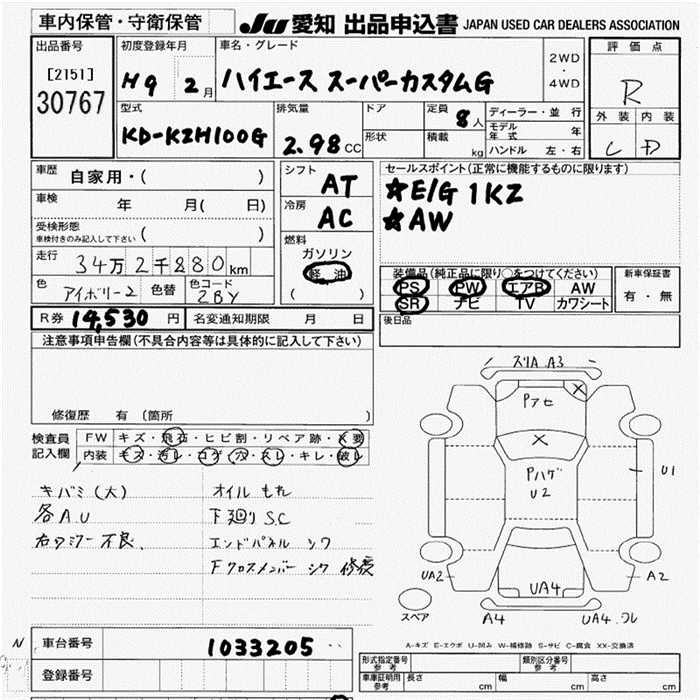 車内保管・守衛保管
JU 愛知 出品申込書 JAPAN USED CAR DEALERS ASSOCIATION
出品番号
[2151]
30767
初度登録年月
H9 2月
車名・グレード
ハイエース スーパーカスタムG
2WD
・
4WD
評価点
R
外装 内装
C D
型式
KD-KZH100G
排気量
2.98 CC
ドア
形状
定員 8人
積載 kg
ディーラー・並行
モデル年式 年
ハンドル 左・右
車歴 自家用・( )
車検 年 月( 日)
受検形態
車検付きのみ記入して下さい ( )
走行 34万2千280km
色 アイボリー2 色替 色コード 2BY
シフト
AT
冷房
AC
燃料
ガソリン
軽油
( )
セールスポイント(正常に機能するものに限ります)
☆E/G 1KZ
☆AW
装備品(純正品に限り○をつけてください)
PS PW エアB AW
SR ナビ TV カワシート
新車保証書
有・無
R券 14,530円 名変通知期限 月 日
後日品
注意事項申告欄(不具合内容等は具体的に記入して下さい)
修復歴 有(箇所 )
検査員記入欄
FW キズ・飛石・ヒビ割・リペア跡・X要
内装 キズ・汚レ・コゲ・穴・スレ・キレ・破レ
キバミ(大)
各A.U
右ミラー不良、
オイルもれ
下廻りS.C
エンドパネル シワ
Fクロスメンバー シワ 修復
スリA A3
Pアセ
X
X
Pハゲ
U2
U1
UA2
A2
UA4
スペア
A4
UA4.ワレ
A-キズ E-エクボ U-凹み W-補修跡 S-サビ C-腐食 XX-交換済
N
車台番号 1033205
登録番号
形式指定番号 参考
類別区分番号 参考
車庫証明用 参考 長さ cm 幅 cm 高さ cm